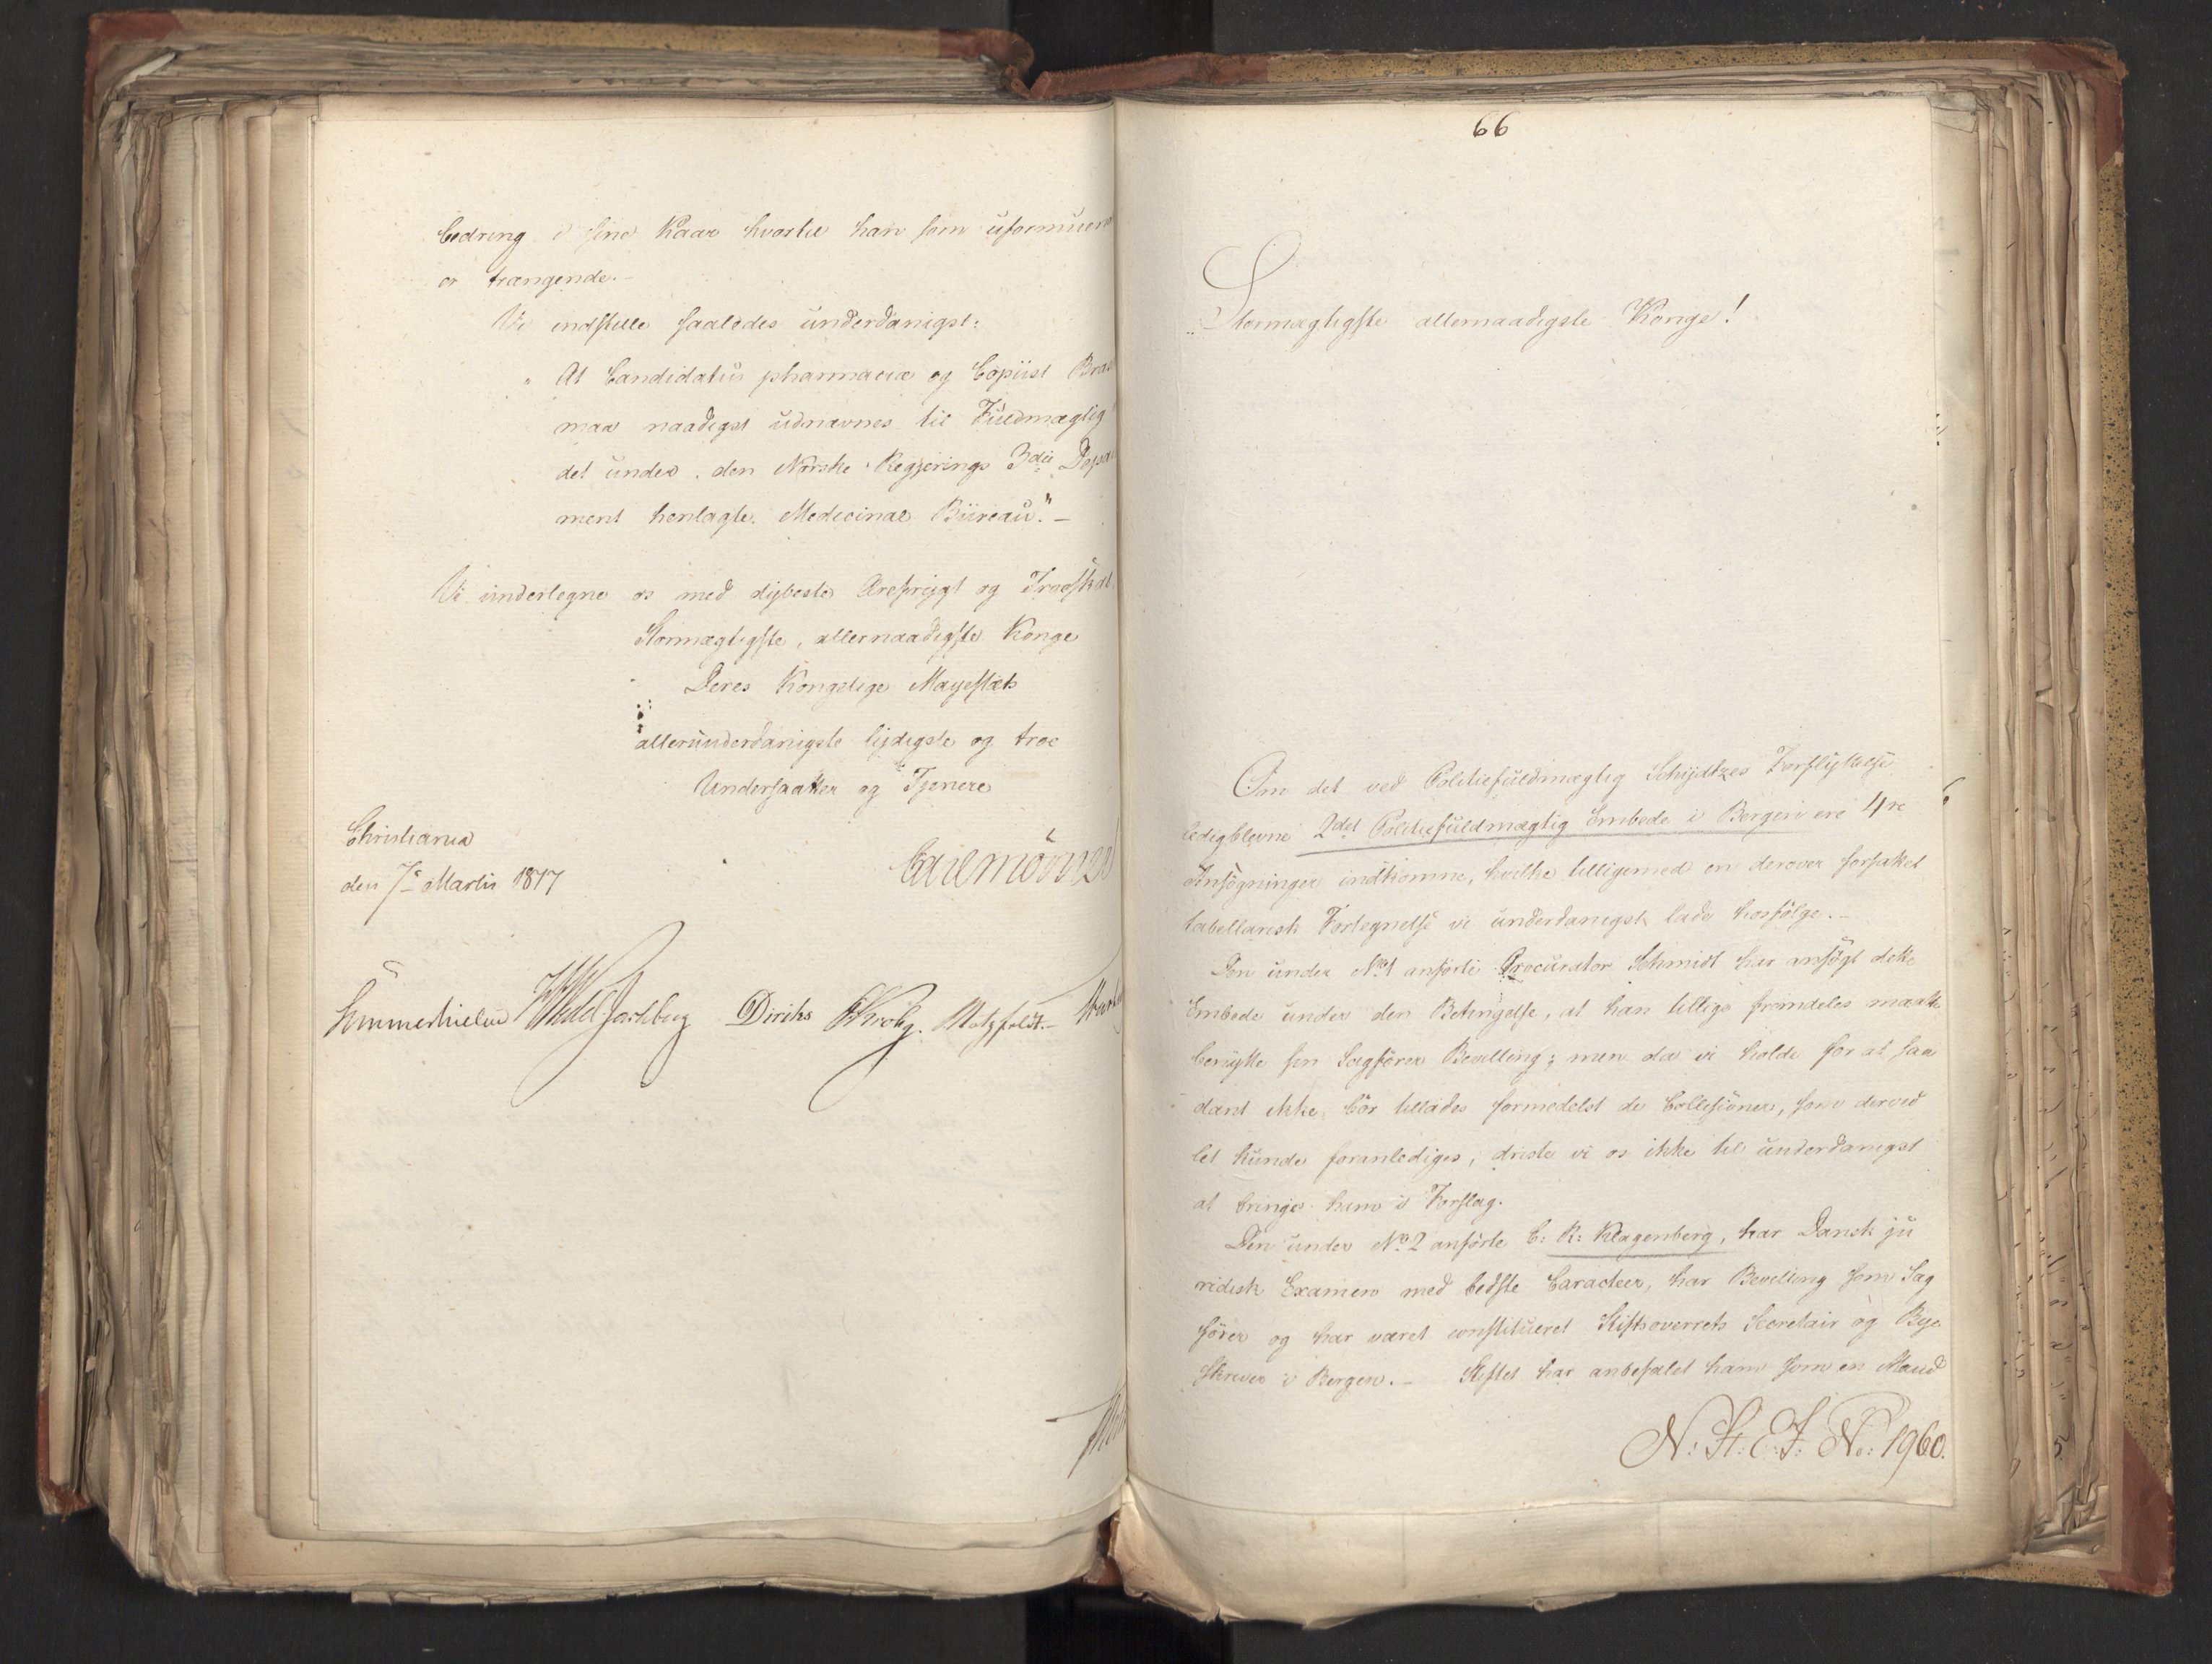 bedring i sine Kaar hvortil han som uformuen
er trængende.
Vi indstille saaledes underdanigst:
" At Candidatus pharmaciæ og Copiist
maa naadigst udnævnes til Fuldmægtig
det under den Norske Regjerings 3die Depar
ment henlagte Medicinal Büreau." –
Vi undertegne os med dybeste Ærefrygt og Troeskab
Stormægtigste, allernaadigste Konge
Deres Kongelige Mayestæts
allerunderdanigste lydigste og troe
Undersaatter og Tjenere
Christiania
den 7de Martii 1817
Carl Mörner
Sommerhielm Wedel Jarlsberg Diriks Krohg. Motzfeldt.–
66
Stormægtigste allernaadigste Konge!
Om det ved Politiefuldmægtig Schydtzes Forflyttelse
ledigblevne 2det Politiefuldmægtig Embede i Bergen ere 4re
Ansögninger indkomne, hvilke tilligemed en derover forfattet
tabellarisk Fortegnelse vi underdanigst lade hosfölge. –
Den under No 1 anförte Procurator Schmidt har ansögt dette
Embede under den Betingelse, at han tillige fremdeles maatte
benytte sin Sagförer Bevilling; men da vi holde for at saa
dant ikke bör tillades formedelst de Collisioner, som derved
let kunde foranlediges, driste vi os ikke til underdanigst
at bringe ham i Forslag.
Den under No 2 anförte C: K: Klagenberg, har Dansk ju
ridisk Examen med bedste Caracteer, har Bevilling som Sag
förer og har været constitueret Stiftsoverrets Secretair og Bye
skriver i Bergen. – Stiftet har anbefalet ham som en Mand
N: St: E: J: No: 1960.